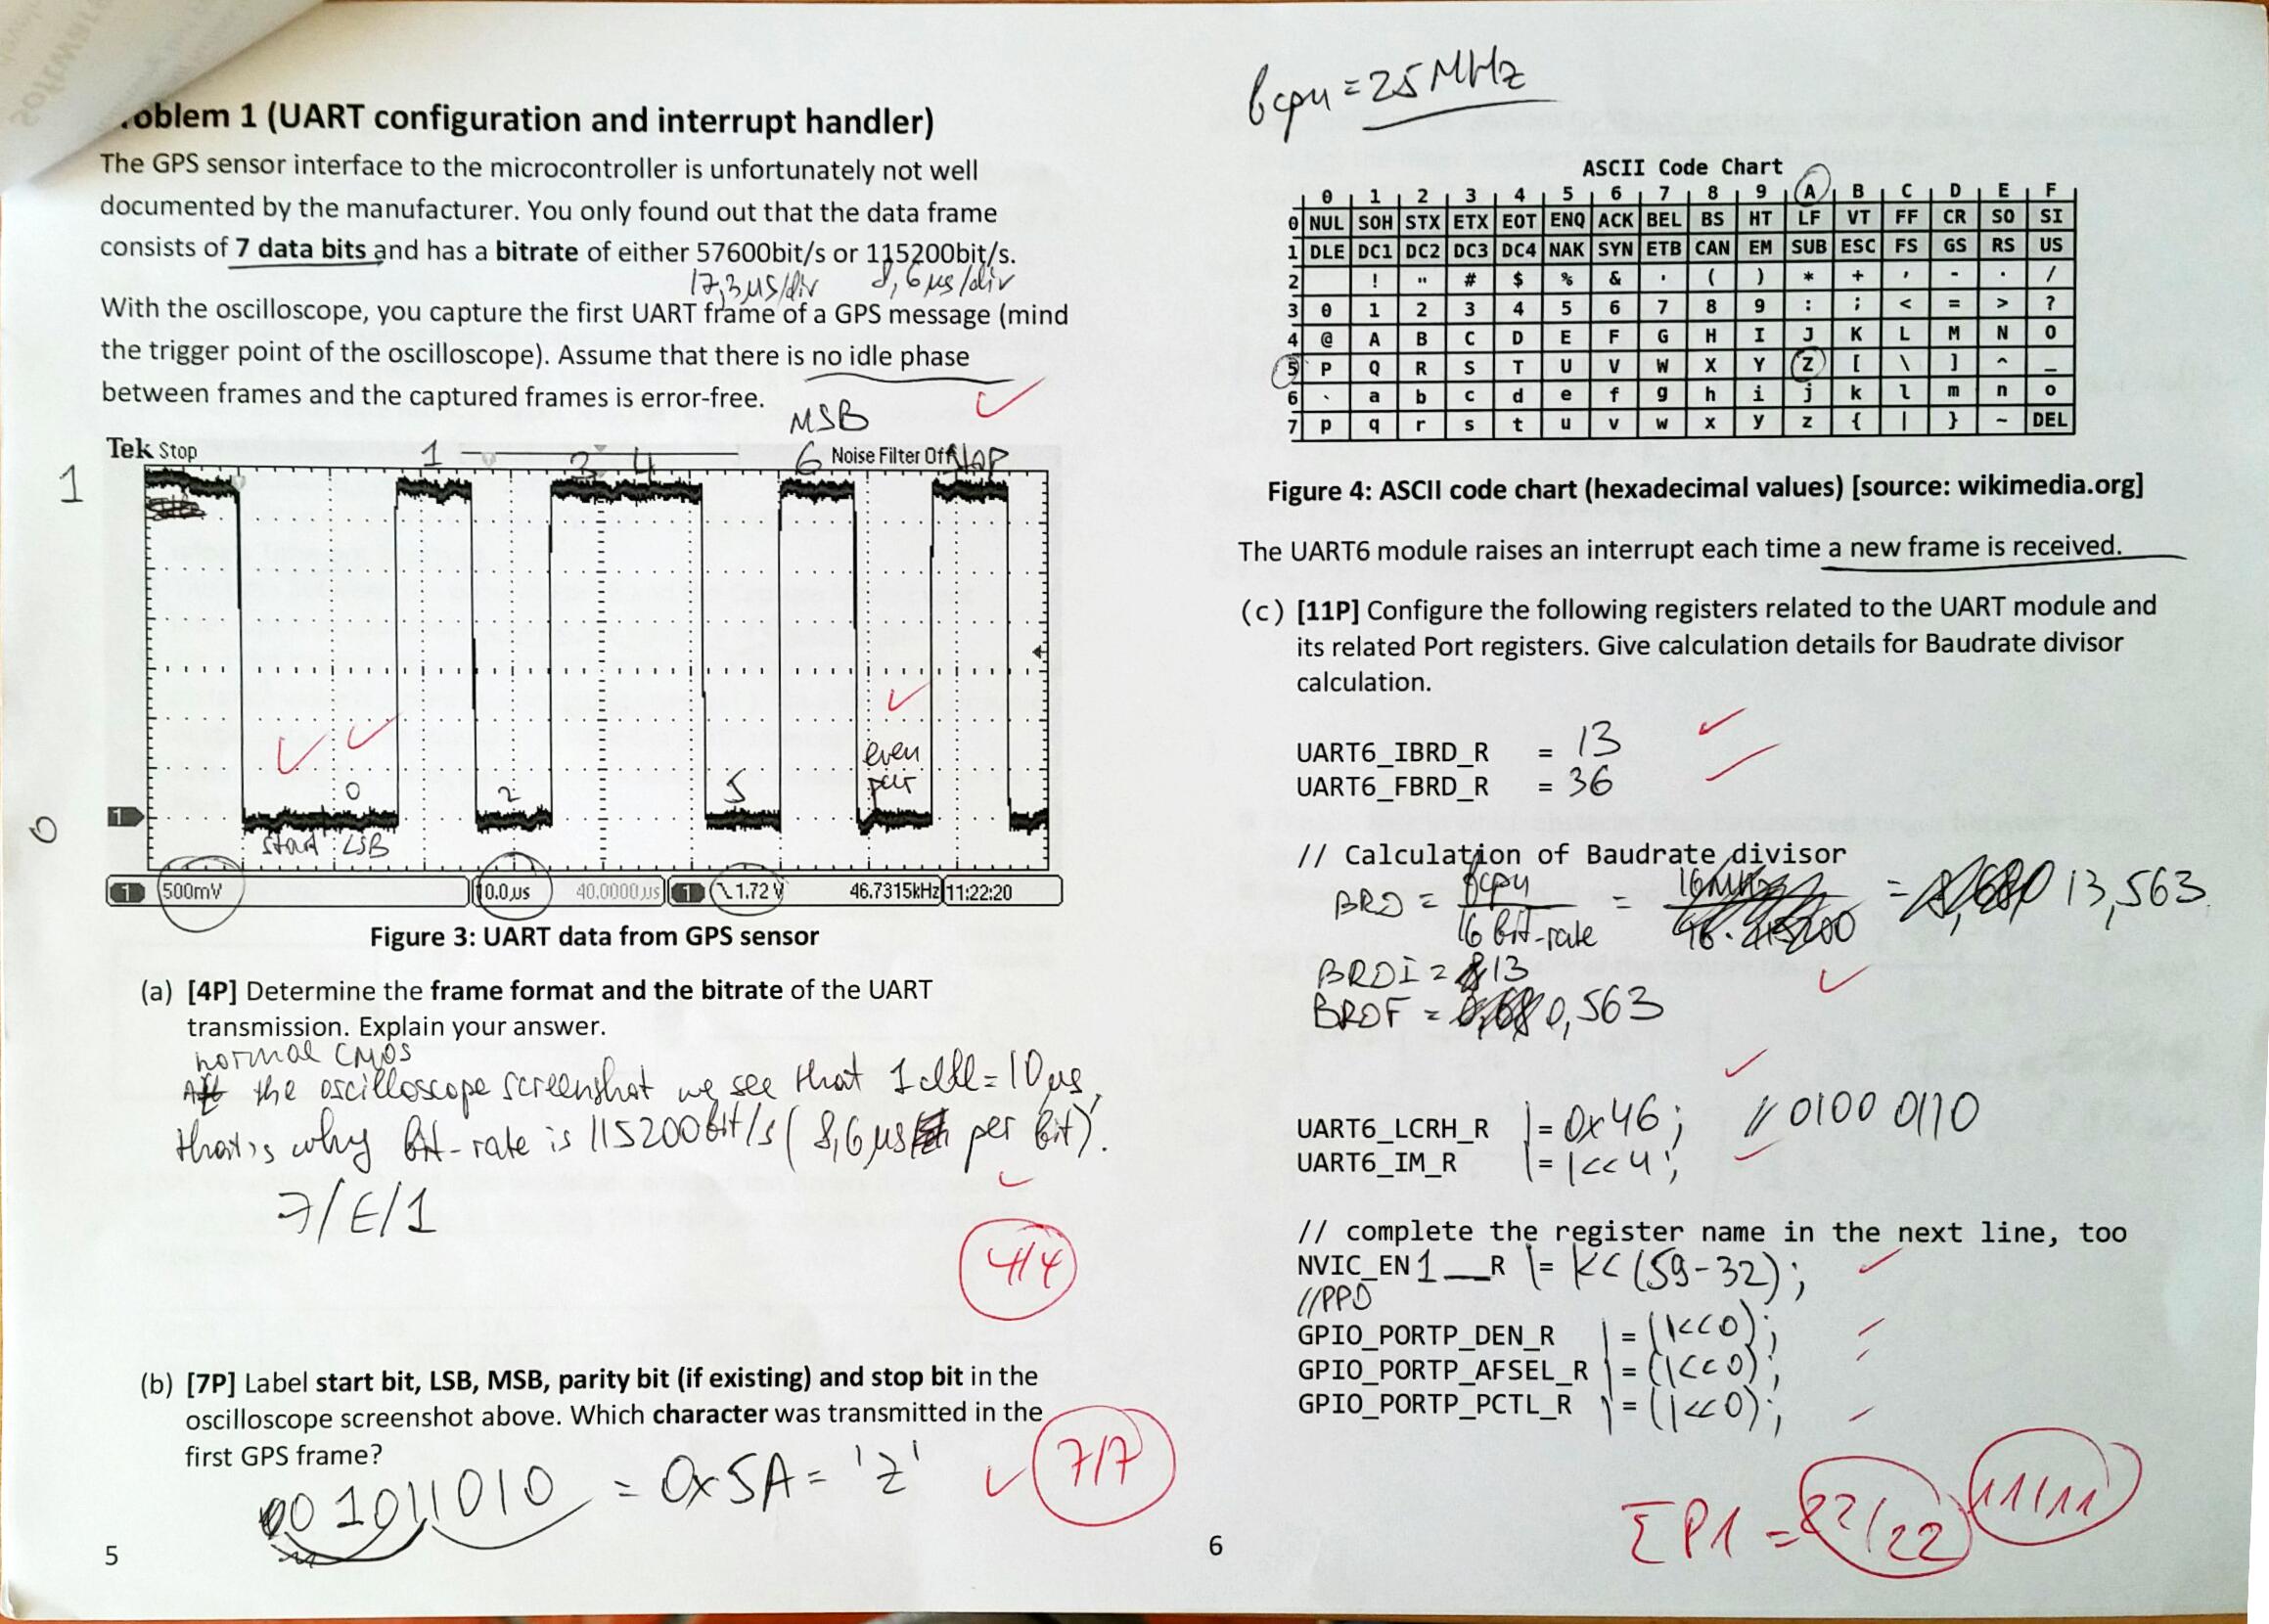 oblem 1 (UART configuration and interrupt handler)
The GPS sensor interface to the microcontroller is unfortunately not well
documented by the manufacturer. You only found out that the data frame
consists of 7 data bits and has a bitrate of either 57600bit/s or 115200bit/s.
17,3µs/div 8,6µs/div
With the oscilloscope, you capture the first UART frame of a GPS message (mind
the trigger point of the oscilloscope). Assume that there is no idle phase
between frames and the captured frames is error-free.
MSB
Tek Stop 1 3 4 6 Noise Filter Off stop
1
0 2 5 even
par
0
start LSB
1 500mV 10.0µs 40.0000µs 1 1.72 V 46.7315kHz 11:22:20
Figure 3: UART data from GPS sensor
(a) [4P] Determine the frame format and the bitrate of the UART
transmission. Explain your answer.
normal CMOS
the oscilloscope screenshot we see that 1 = 10µs,
that's why bit-rate is 115200bit/s (8,6µs per bit).
7/E/1
4/4
(b) [7P] Label start bit, LSB, MSB, parity bit (if existing) and stop bit in the
oscilloscope screenshot above. Which character was transmitted in the
first GPS frame?
01011010 = 0x5A = 'Z'
7/7
5
fcpu = 25 MHz
ASCII Code Chart
0 1 2 3 4 5 6 7 8 9 A B C D E F
0 NUL SOH STX ETX EOT ENQ ACK BEL BS HT LF VT FF CR SO SI
1 DLE DC1 DC2 DC3 DC4 NAK SYN ETB CAN EM SUB ESC FS GS RS US
2 ! " # $ % & ' ( ) * + , - . /
3 0 1 2 3 4 5 6 7 8 9 : ; < = > ?
4 @ A B C D E F G H I J K L M N O
5 P Q R S T U V W X Y Z [ \ ] ^ _
6 ` a b c d e f g h i j k l m n o
7 p q r s t u v w x y z { | } ~ DEL
Figure 4: ASCII code chart (hexadecimal values) [source: wikimedia.org]
The UART6 module raises an interrupt each time a new frame is received.
(c) [11P] Configure the following registers related to the UART module and
its related Port registers. Give calculation details for Baudrate divisor
calculation.
UART6_IBRD_R = 13
UART6_FBRD_R = 36
// Calculation of Baudrate divisor
BRD = fcpu / 16 bit-rate = = 13,563
BRDI = 13
BRDF = 0,563
UART6_LCRH_R |= 0x46; // 0100 0110
UART6_IM_R |= 1<<4;
// complete the register name in the next line, too
NVIC_EN1__R |= 1<<(59-32);
//PP0
GPIO_PORTP_DEN_R |= (1<<0);
GPIO_PORTP_AFSEL_R |= (1<<0);
GPIO_PORTP_PCTL_R |= (1<<0);
11/11
ΣP1 = 22/22
6